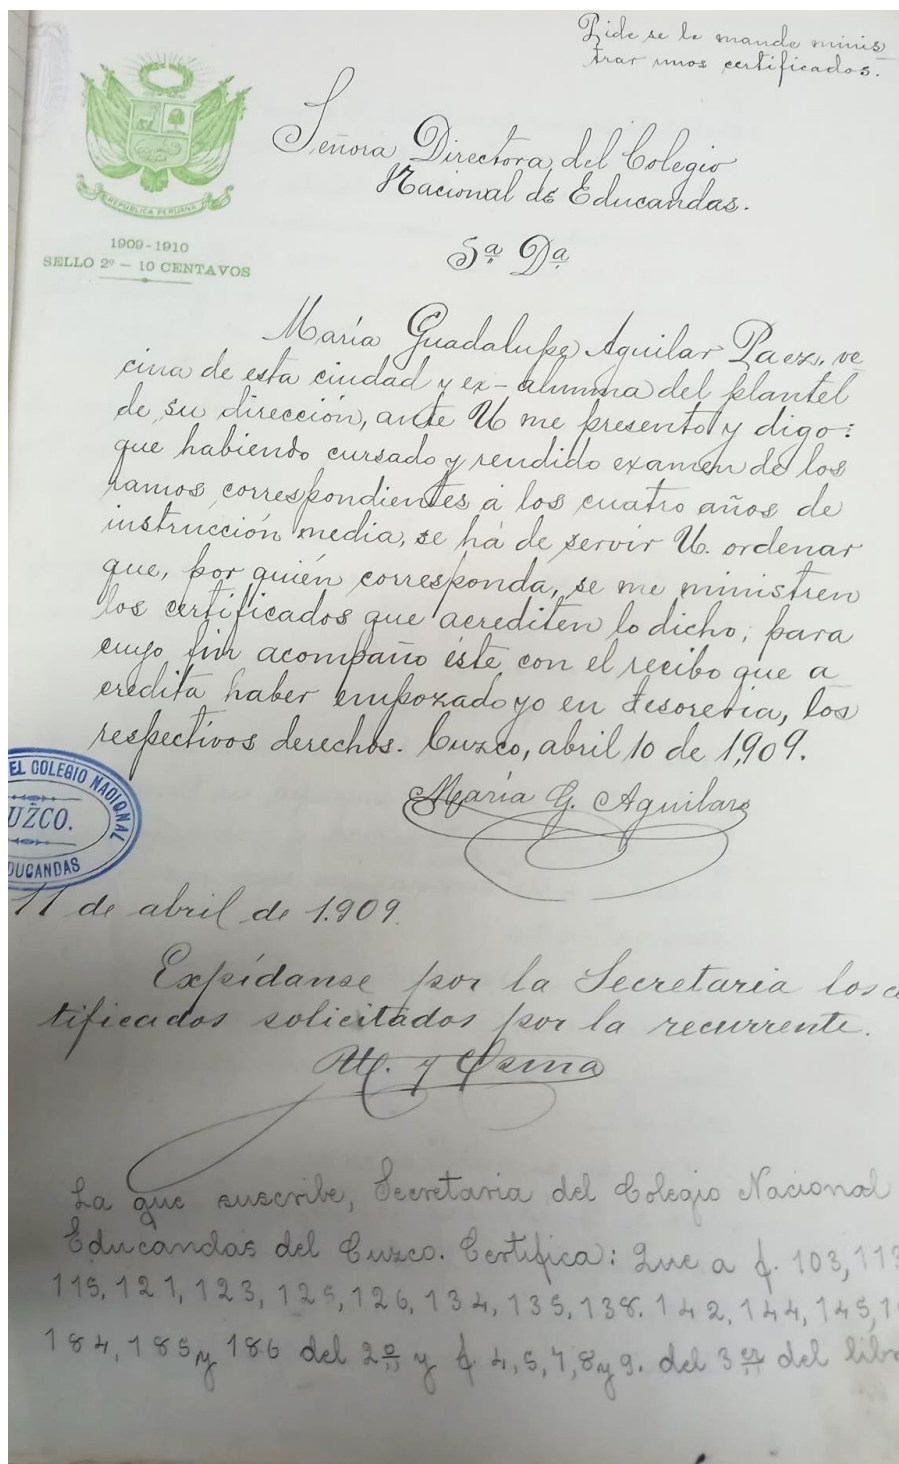 Pide se le mande minis
trar unos certificados.
REPUBLICA PERUANA
1909-1910
SELLO 2º — 10 CENTAVOS
Señora Directora del Colegio
Nacional de Educandas.
S.ª D.ª
María Guadalupe Aguilar Paez, ve
cina de esta ciudad y ex-alumna del plantel
de su dirección, ante U me presento y digo:
que habiendo cursado y rendido examen de los
ramos correspondientes á los cuatro años de
instrucción media, se há de servir U. ordenar
que, por quién corresponda, se me ministren
los certificados que acrediten lo dicho; para
cuyo fin acompaño éste con el recibo que a
credita haber empozado yo en tesoreria, los
respectivos derechos. Cuzco, abril 10 de 1,909.
María G. Aguilar
EL COLEGIO NACIONAL
UZCO.
DUCANDAS
11 de abril de 1.909.
Expídanse por la Secretaria los c
tificados solicitados por la recurrente.
M. y Osma
La que suscribe, Secretaria del Colegio Nacional
Educandas del Cuzco. Certifica: Que a f. 103, 113
115, 121, 123, 125, 126, 134, 135, 138. 142, 144, 145, 1
184, 185 y 186 del 2º y f. 4, 5, 7, 8 y 9. del 3er del libr